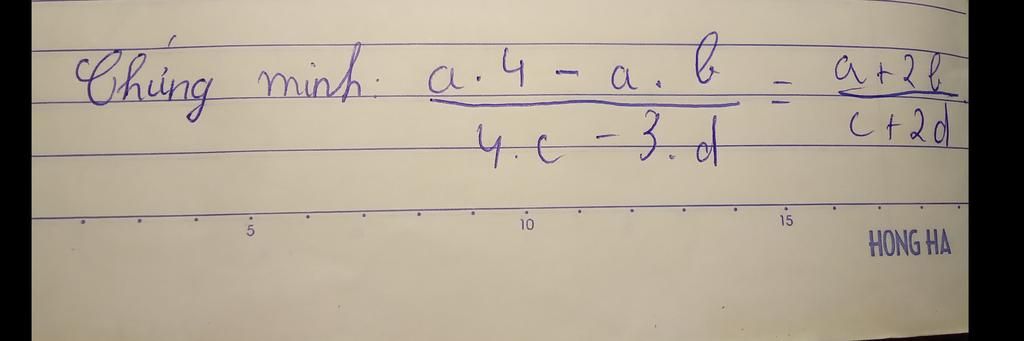 Chứng minh: a.4 - a.b / 4.c - 3.d = a+2b / c+2d
5 10 15
HONG HA